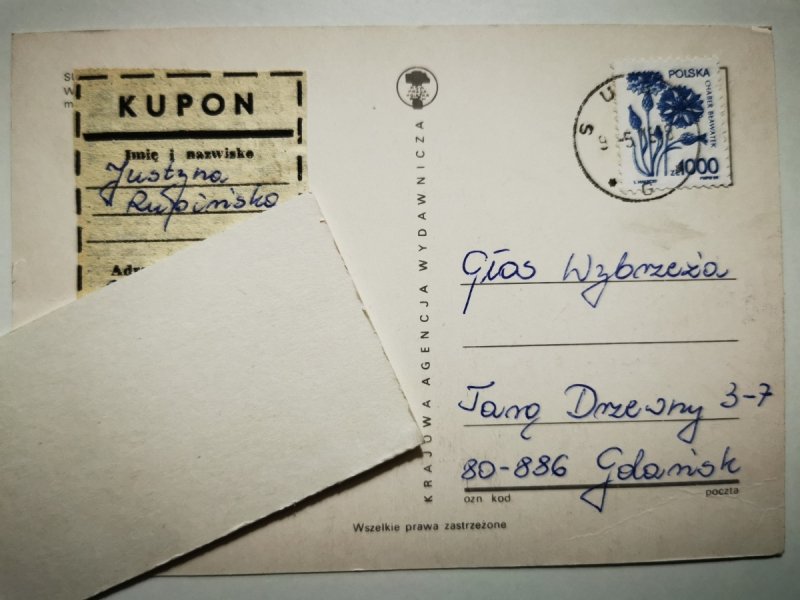 KUPON
Imię i nazwisko
Justyna
Rupińska
KRAJOWA AGENCJA WYDAWNICZA
POLSKA
CHABER BŁAWATEK
zł 1000
Głos Wybrzeża
Targ Drzewny 3-7
80-886 Gdańsk
ozn kod
poczta
Wszelkie prawa zastrzeżone